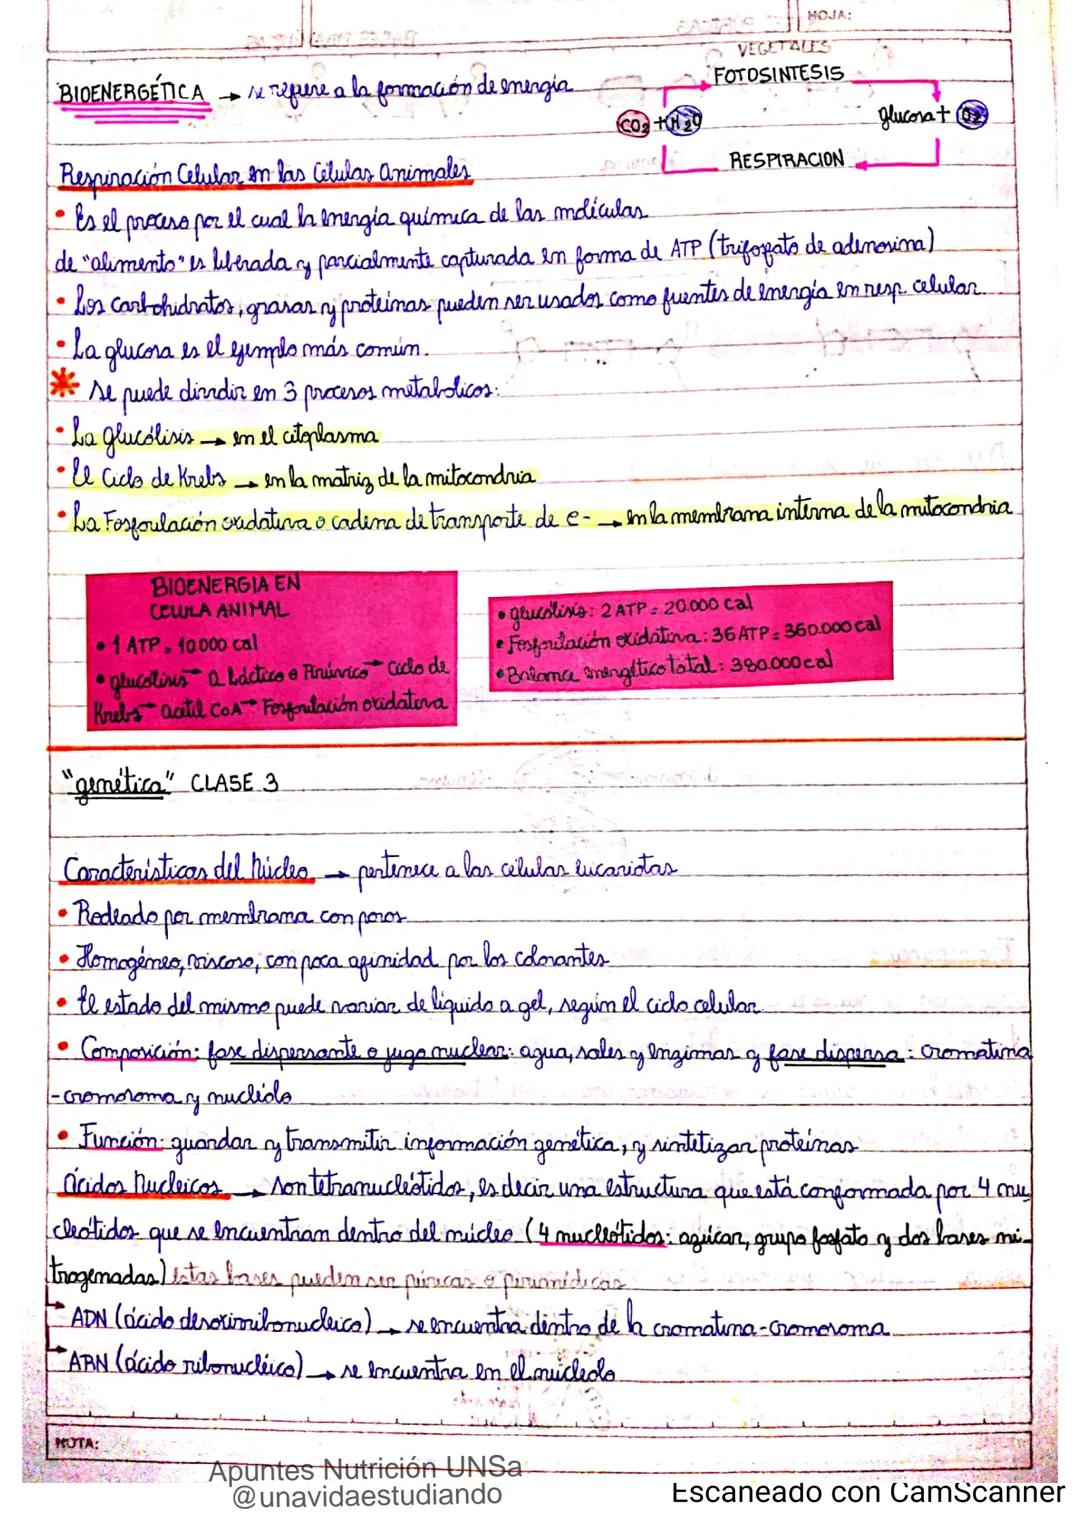 HOJA:
VEGETALES
FOTOSINTESIS
BIOENERGÉTICA → se refiere a la formación de energía
CO2 + H2O
glucosa + O2
RESPIRACION
Respiración Celular en las Células Animales
• Es el proceso por el cual la energía química de las moléculas
de "alimento" es liberada y parcialmente capturada en forma de ATP (trifosfato de adenosina)
• Los carbohidratos, grasas y proteínas pueden ser usados como fuentes de energía en resp. celular
• La glucosa es el ejemplo más común.
* Se puede dividir en 3 procesos metabólicos:
• La glucólisis → en el citoplasma
• El Ciclo de Krebs → en la matriz de la mitocondria
• La Fosforilación oxidativa o cadena de transporte de e- → en la membrana interna de la mitocondria
BIOENERGIA EN
CELULA ANIMAL
• 1 ATP = 10.000 cal
• glucolisis → a. Láctico o Pirúvico → Ciclo de
Krebs → acetil CoA → Fosforilación oxidativa
• glucólisis: 2 ATP = 20.000 cal
• Fosforilación oxidativa: 36 ATP = 360.000 cal
• Balance energético total: 380.000 cal
"genética" CLASE 3
Características del Núcleo → pertenece a las células eucariotas
• Rodeado por membrana con poros
• Homogéneo, viscoso, con poca afinidad por los colorantes
• El estado del mismo puede variar de líquido a gel, según el ciclo celular
• Composición: fase dispersante o jugo nuclear: agua, sales y enzimas y fase dispersa: cromatina
- cromosoma y nucléolo
• Función: guardar y transmitir información genética, y sintetizar proteínas
Ácidos Nucleicos → son tetranucleótidos, es decir una estructura que está conformada por 4 nu
cleótidos que se encuentran dentro del núcleo (4 nucleótidos: azúcar, grupo fosfato y dos bases ni-
trogenadas) Estas bases pueden ser púricas o pirimídicas
→ ADN (ácido desoxirribonucleico) → se encuentra dentro de la cromatina-cromosoma
→ ARN (ácido ribonucléico) → se encuentra en el nucleolo
NOTA:
Apuntes Nutrición UNSa
@unavidaestudiando
Escaneado con CamScanner